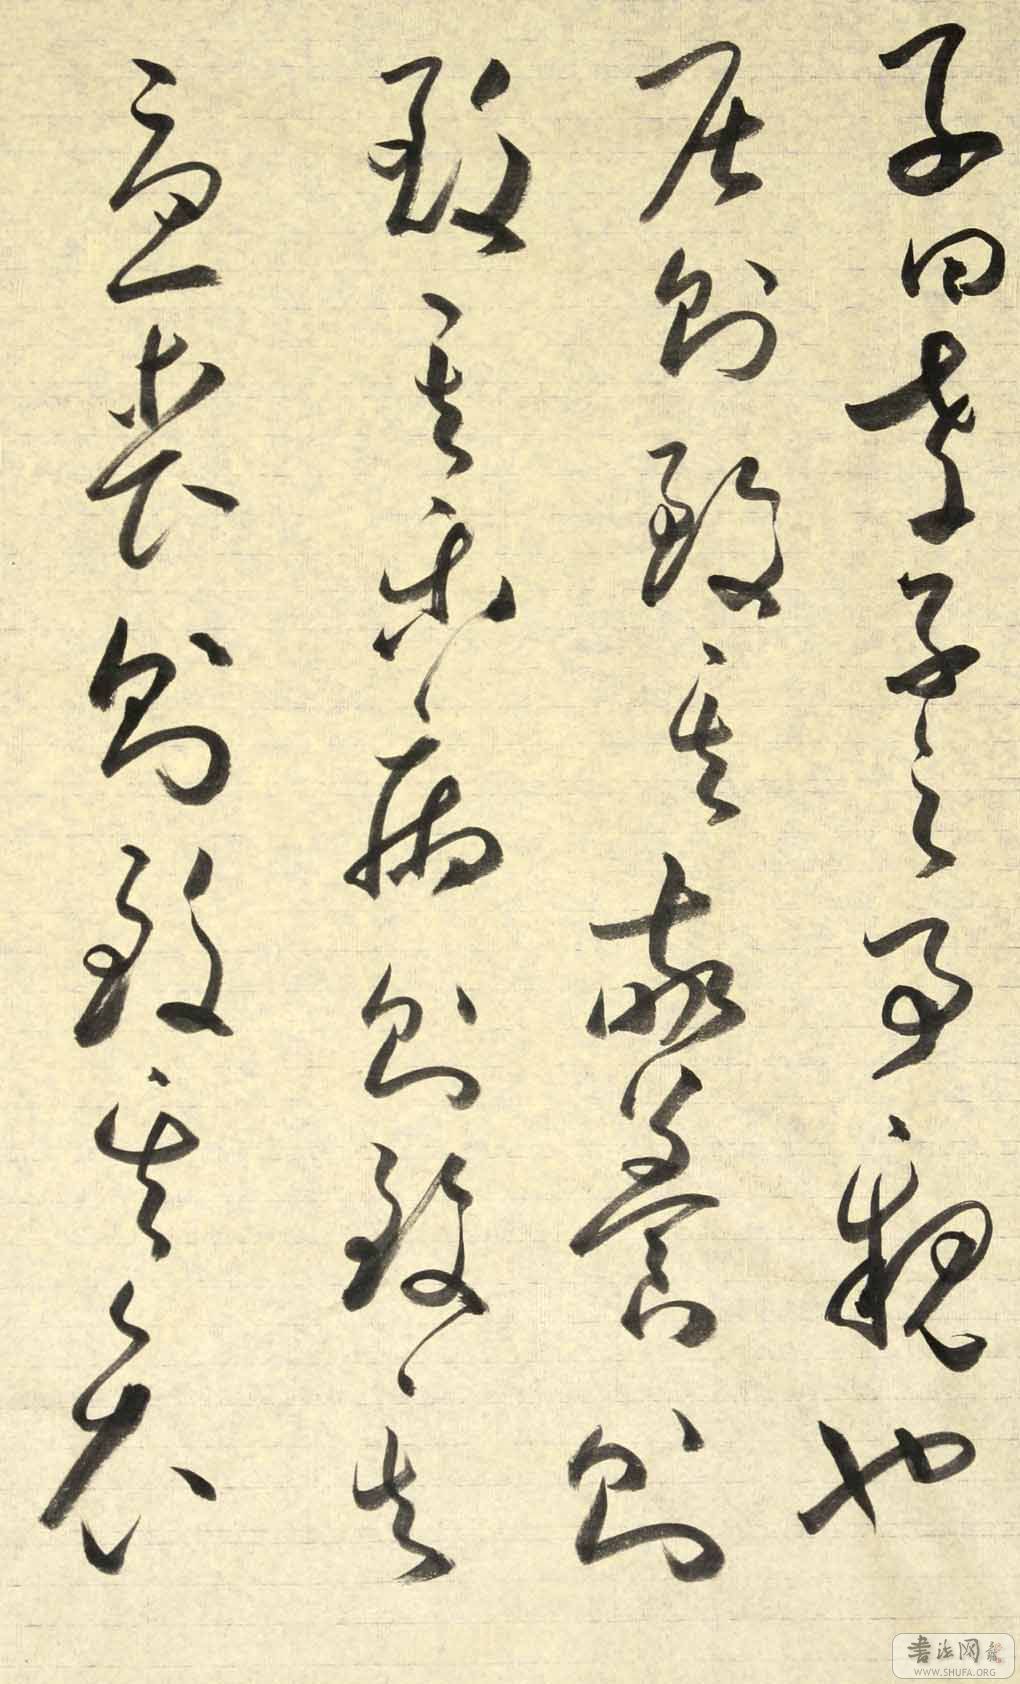 子曰孝子之事親也
居則致其敬養則
致其樂病則致其
憂喪則致其哀
書法网
WWW.SHUFA.ORG